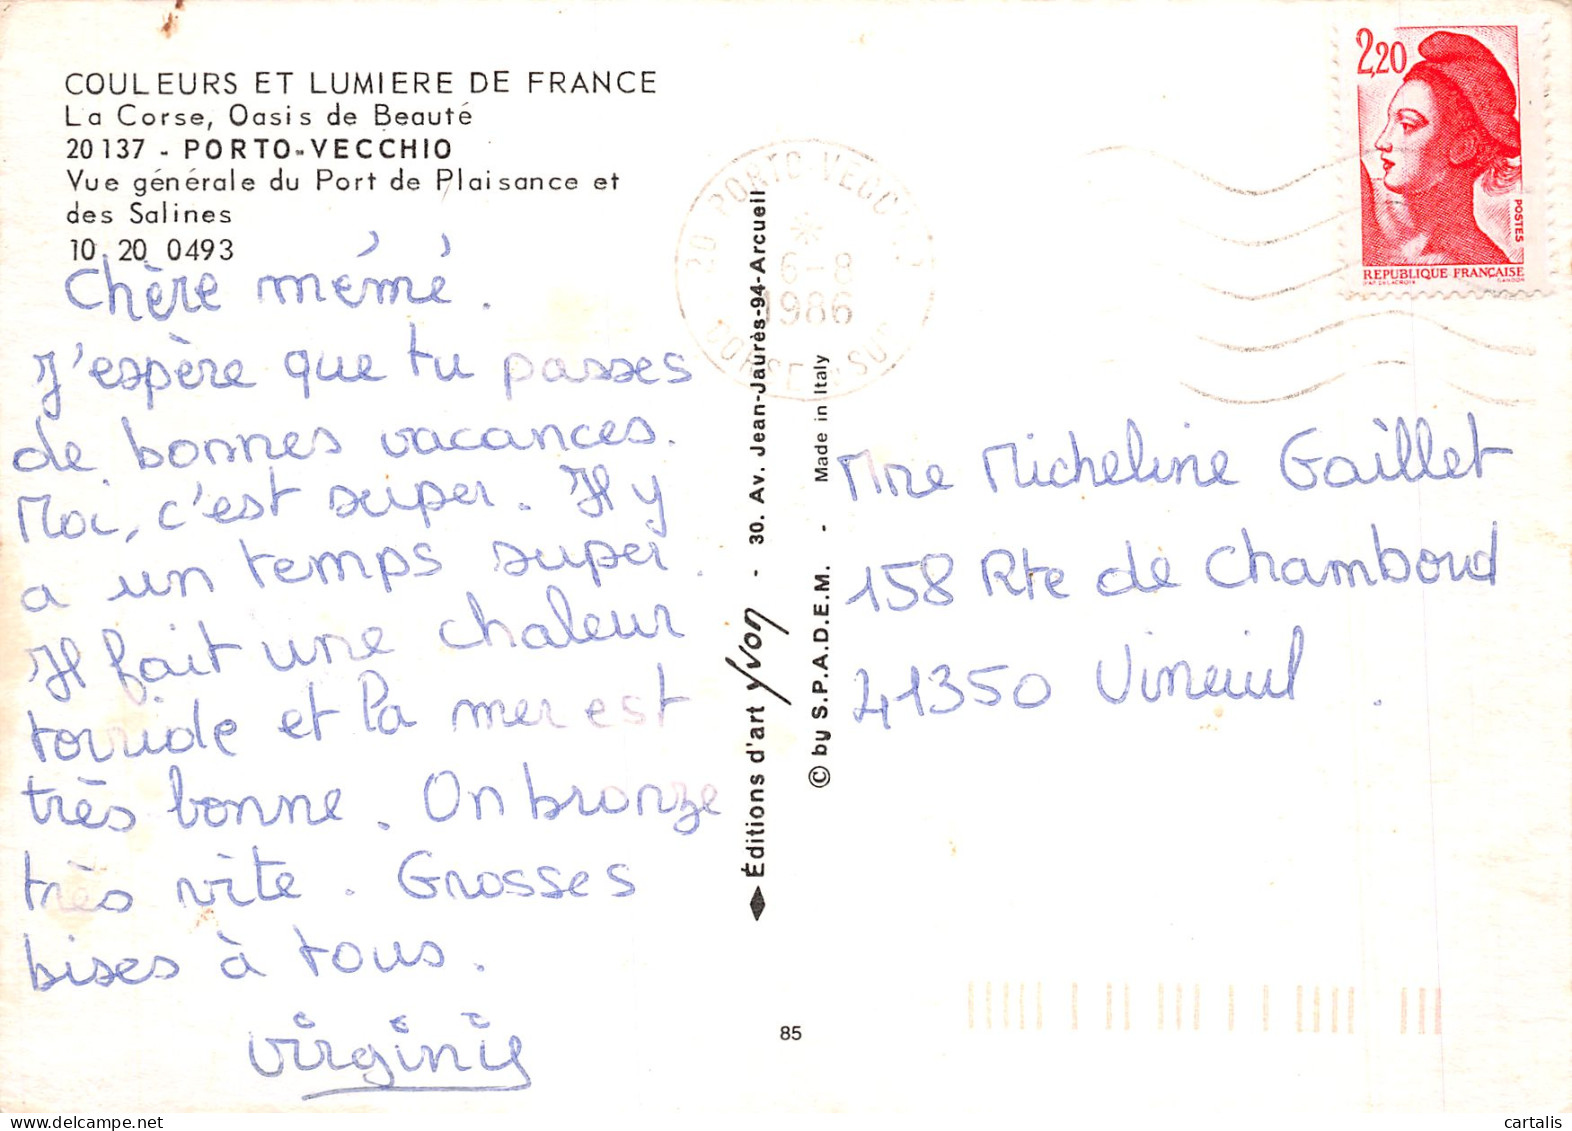 COULEURS ET LUMIERE DE FRANCE
La Corse, Oasis de Beauté
20137 - PORTO-VECCHIO
Vue générale du Port de Plaisance et
des Salines
10 20 0493
Chère mémé.
J'espère que tu passes
de bonnes vacances.
Moi, c'est super. Il y
a un temps super.
Il fait une chaleur
torride et la mer est
très bonne. On bronze
très vite. Grosses
bises à tous.
Virginie
Éditions d'art Yvon - 30. Av. Jean-Jaurès-94-Arcueil
© by S.P.A.D.E.M. - Made in Italy
85
20 PORTO VECCHIO
6-8
1986
CORSE DU SUD
2,20
POSTES
REPUBLIQUE FRANÇAISE
D'AP. DELACROIX GANDON
Mme Micheline Gaillet
158 Rte de Chambord
41350 Vineuil.
cartalis